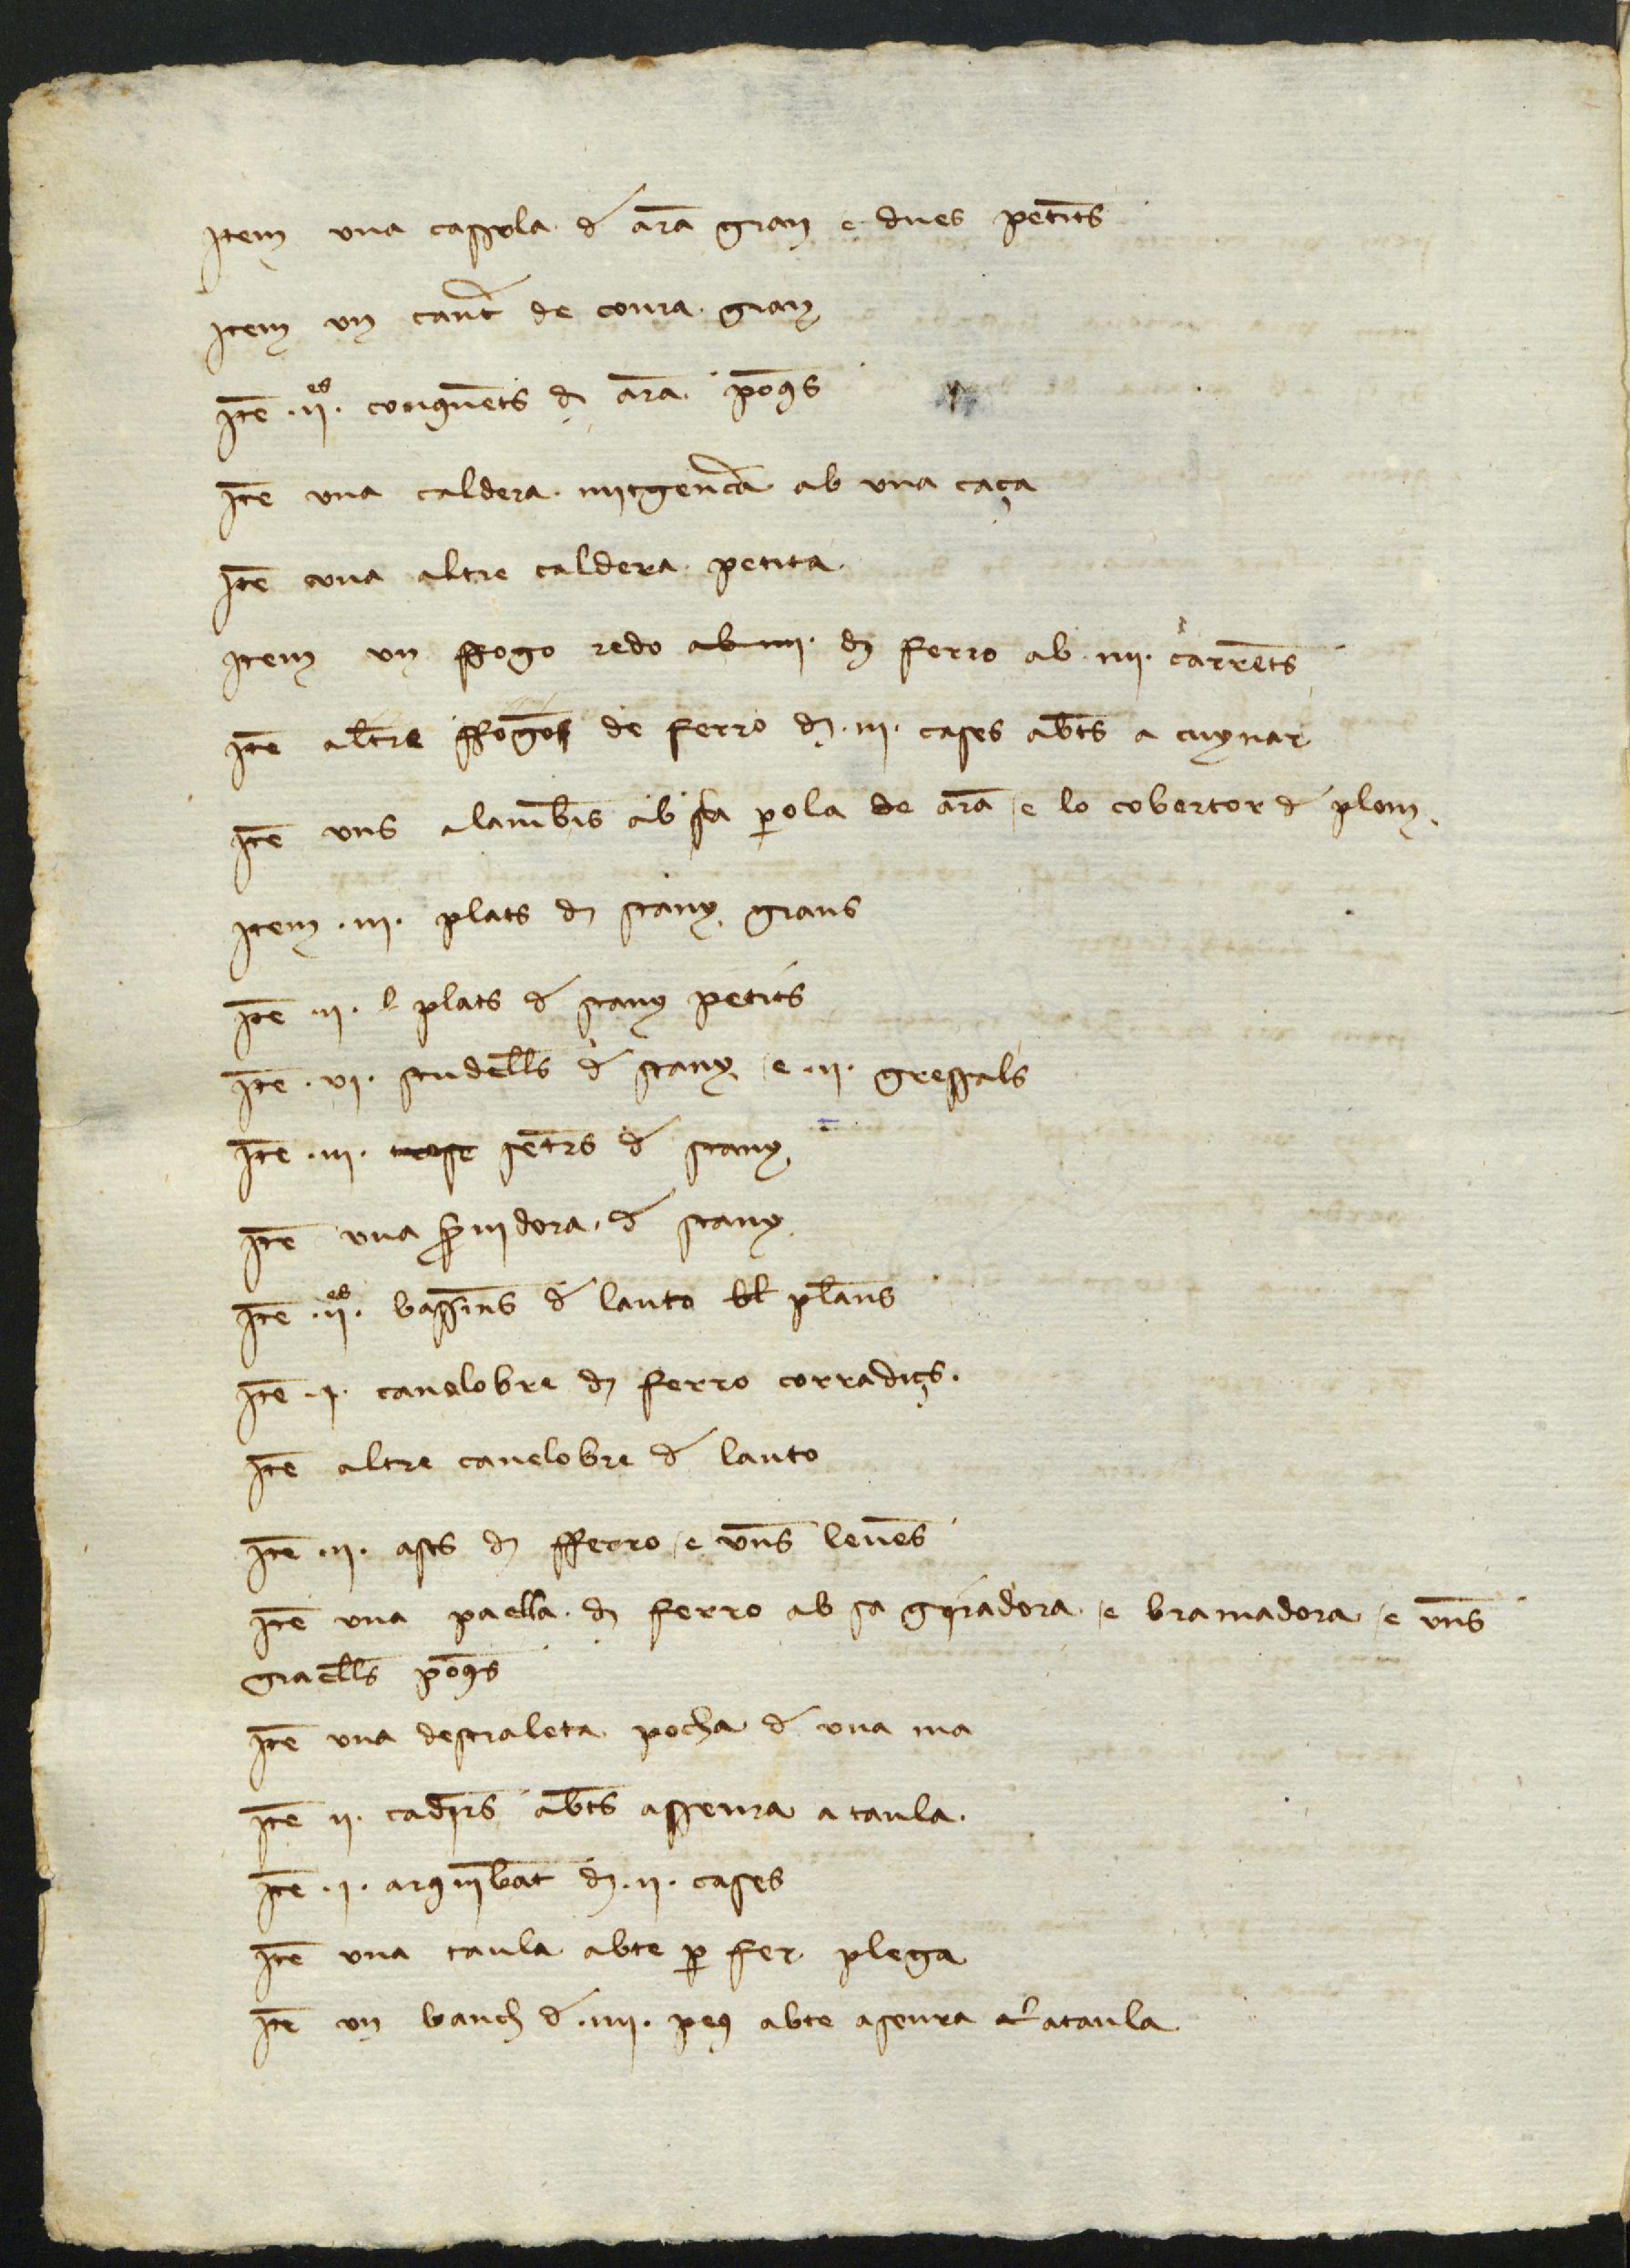 Item una cassola d ara gran e dues petits
Item un cant de coura gran
Ite .ii.es conquets d ara pochs
Ite una caldera mitgenca ab una caça
Ite una altre caldera petita
Item un ffogo redo ab iiii. d ferro ab .iiii. carrets
Ite altre ffogo de ferro d .iii. cases abts a cuynar
Ite uns alambis ab sa perola de ara e lo cobertor d plom
Item .iii. plats d stany grans
Ite .ii. plats d stany petits
Ite .vi. scudells d stany e .ii. gresals
Ite .iii. setrs d stany
Ite una d stany
Ite .ii.es bassins d lauto bl plans
Ite .i. canalobre d ferro corradiçs.
Ite altre canelobre d lauto
Ite .ii. asts d fferro e uns leves
Ite una paella d ferro ab sa giradora e bramadora e uns
graells pochs
Ite una destraleta pocha d una ma
Ite ii. cadirs abts asseura a taula.
Ite .i. arquibat d .ii. cases
Ite una taula abte p fer plega
Ite un banch d .iiii. peus abte aseura a ataula